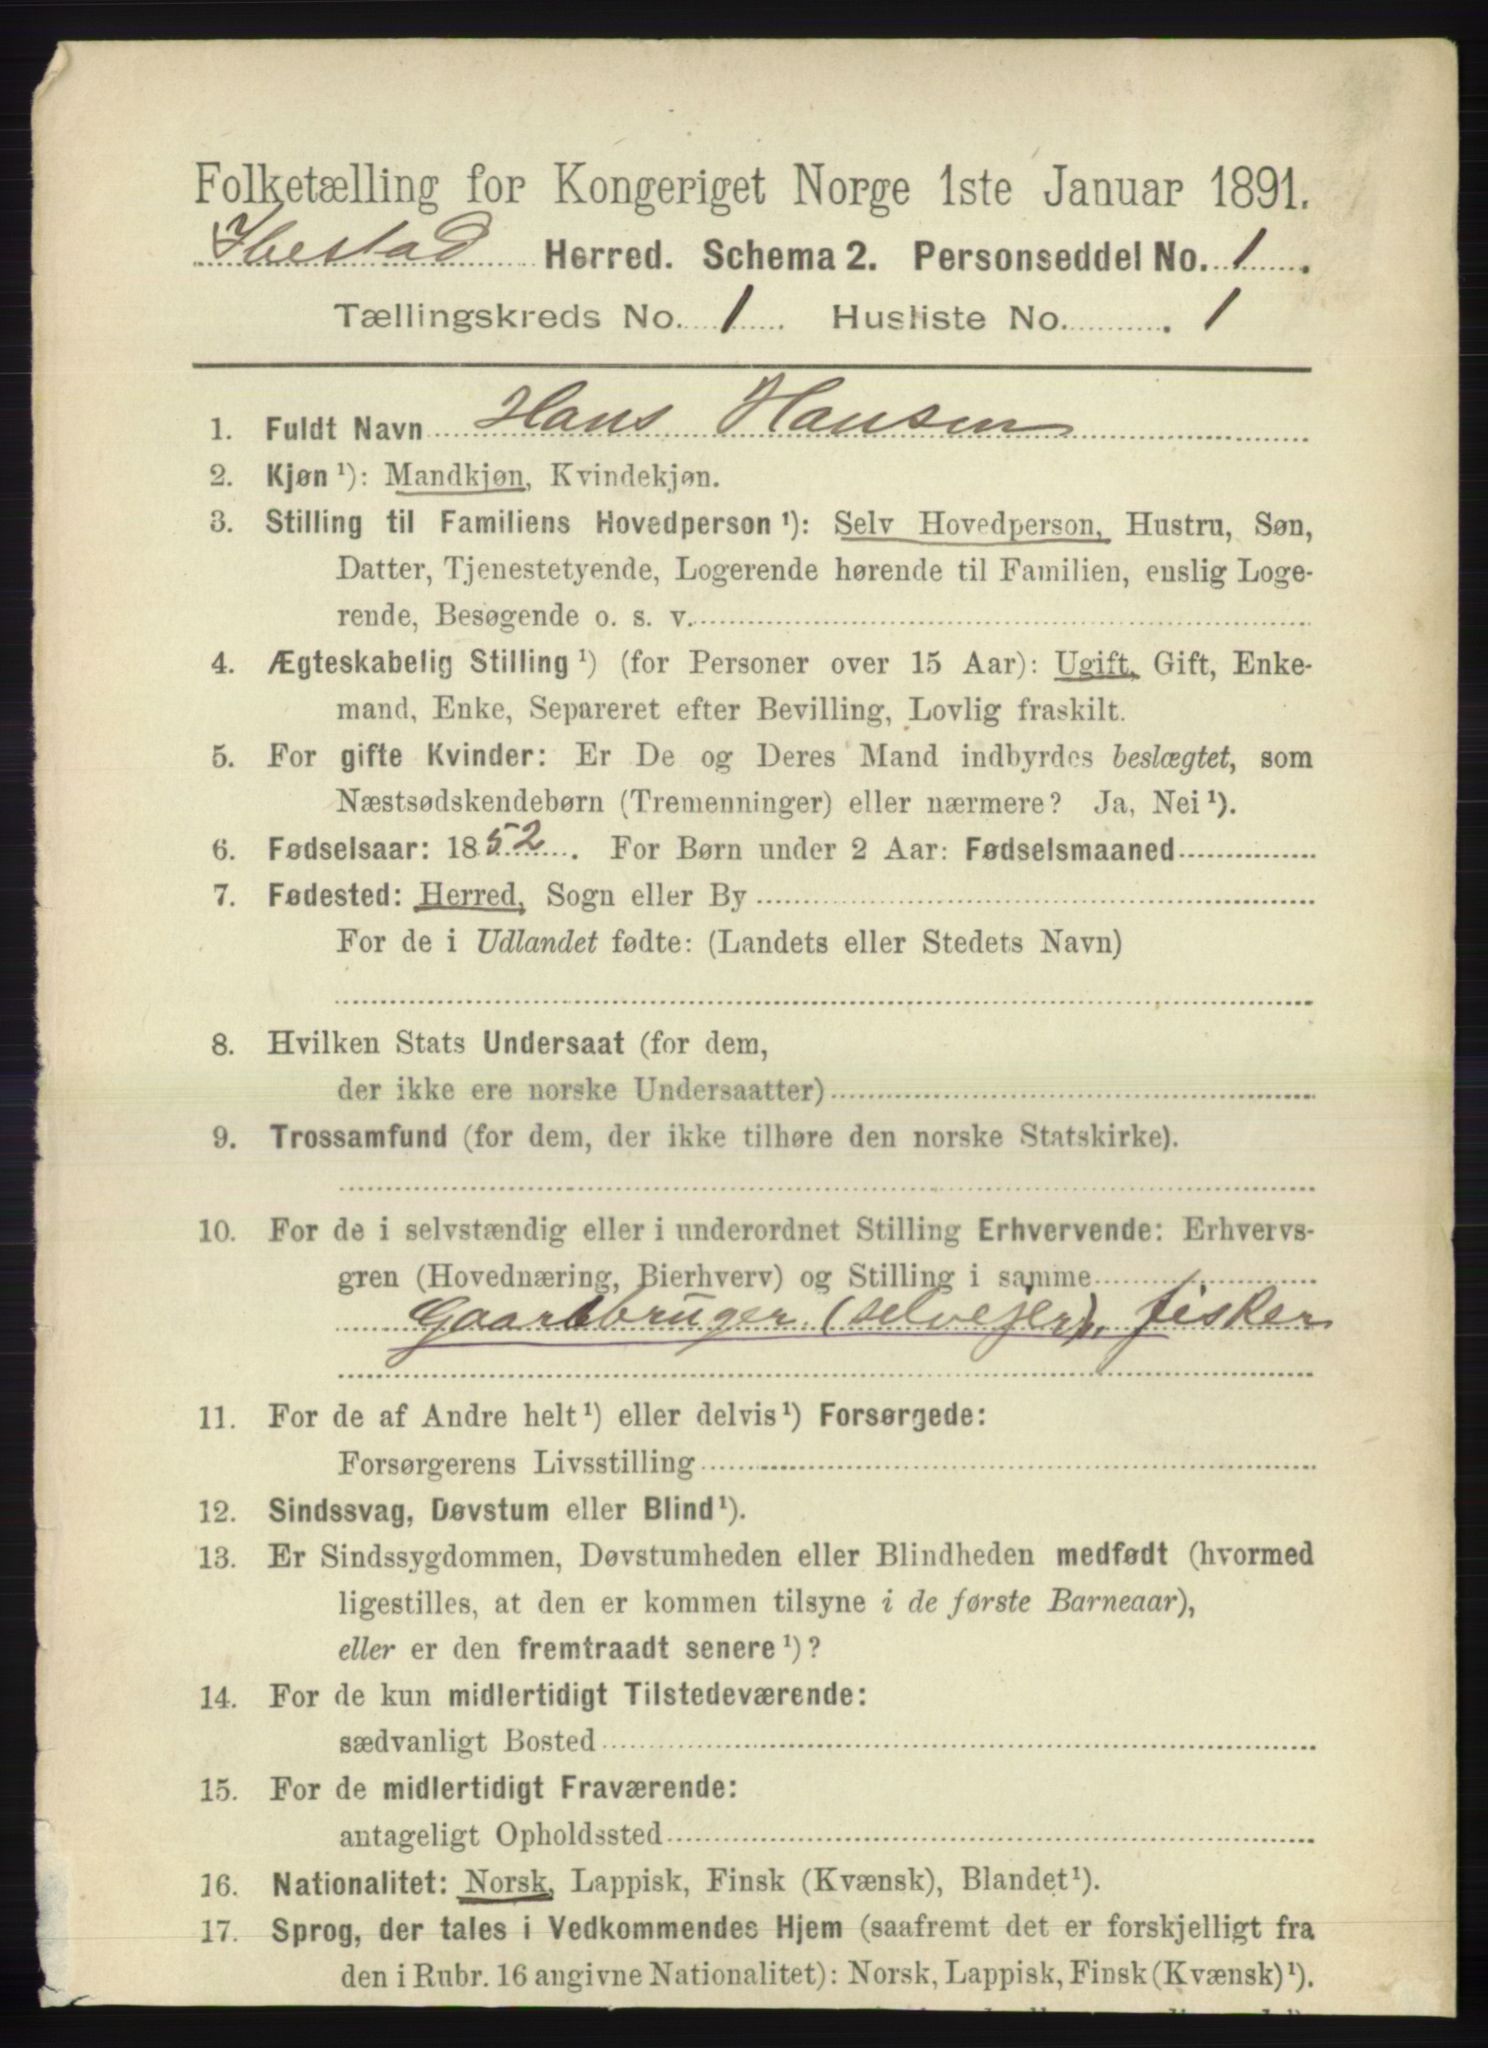 Folketælling for Kongeriget Norge 1ste Januar 1891.
Ibestad Herred. Schema 2. Personseddel No. 1.
Tællingskreds No. 1. Husliste No. 1
1. Fuldt Navn Hans Hansen
2. Kjøn ¹): Mandkjøn, Kvindekjøn.
3. Stilling til Familiens Hovedperson ¹): Selv Hovedperson, Hustru, Søn,
Datter, Tjenestetyende, Logerende hørende til Familien, enslig Loge-
rende, Besøgende o. s. v.
4. Ægteskabelig Stilling ¹) (for Personer over 15 Aar): Ugift, Gift, Enke-
mand, Enke, Separeret efter Bevilling, Lovlig fraskilt.
5. For gifte Kvinder: Er De og Deres Mand indbyrdes beslægtet, som
Næstsødskendebørn (Tremenninger) eller nærmere? Ja, Nei ¹).
6. Fødselsaar: 1852. For Børn under 2 Aar: Fødselsmaaned
7. Fødested: Herred, Sogn eller By
For de i Udlandet fødte: (Landets eller Stedets Navn)
8. Hvilken Stats Undersaat (for dem,
der ikke ere norske Undersaatter)
9. Trossamfund (for dem, der ikke tilhøre den norske Statskirke).
10. For de i selvstændig eller i underordnet Stilling Erhvervende: Erhvervs-
gren (Hovednæring, Bierhverv) og Stilling i samme
Gaardbruger (selvejer), fisker
11. For de af Andre helt ¹) eller delvis ¹) Forsørgede:
Forsørgerens Livsstilling
12. Sindssvag, Døvstum eller Blind ¹).
13. Er Sindssygdommen, Døvstumheden eller Blindheden medfødt (hvormed
ligestilles, at den er kommen tilsyne i de første Barneaar),
eller er den fremtraadt senere ¹)?
14. For de kun midlertidigt Tilstedeværende:
sædvanligt Bosted
15. For de midlertidigt Fraværende:
antageligt Opholdssted
16. Nationalitet: Norsk, Lappisk, Finsk (Kvænsk), Blandet ¹).
17. Sprog, der tales i Vedkommendes Hjem (saafremt det er forskjelligt fra
den i Rubr. 16 angivne Nationalitet): Norsk, Lappisk, Finsk (Kvænsk) ¹).